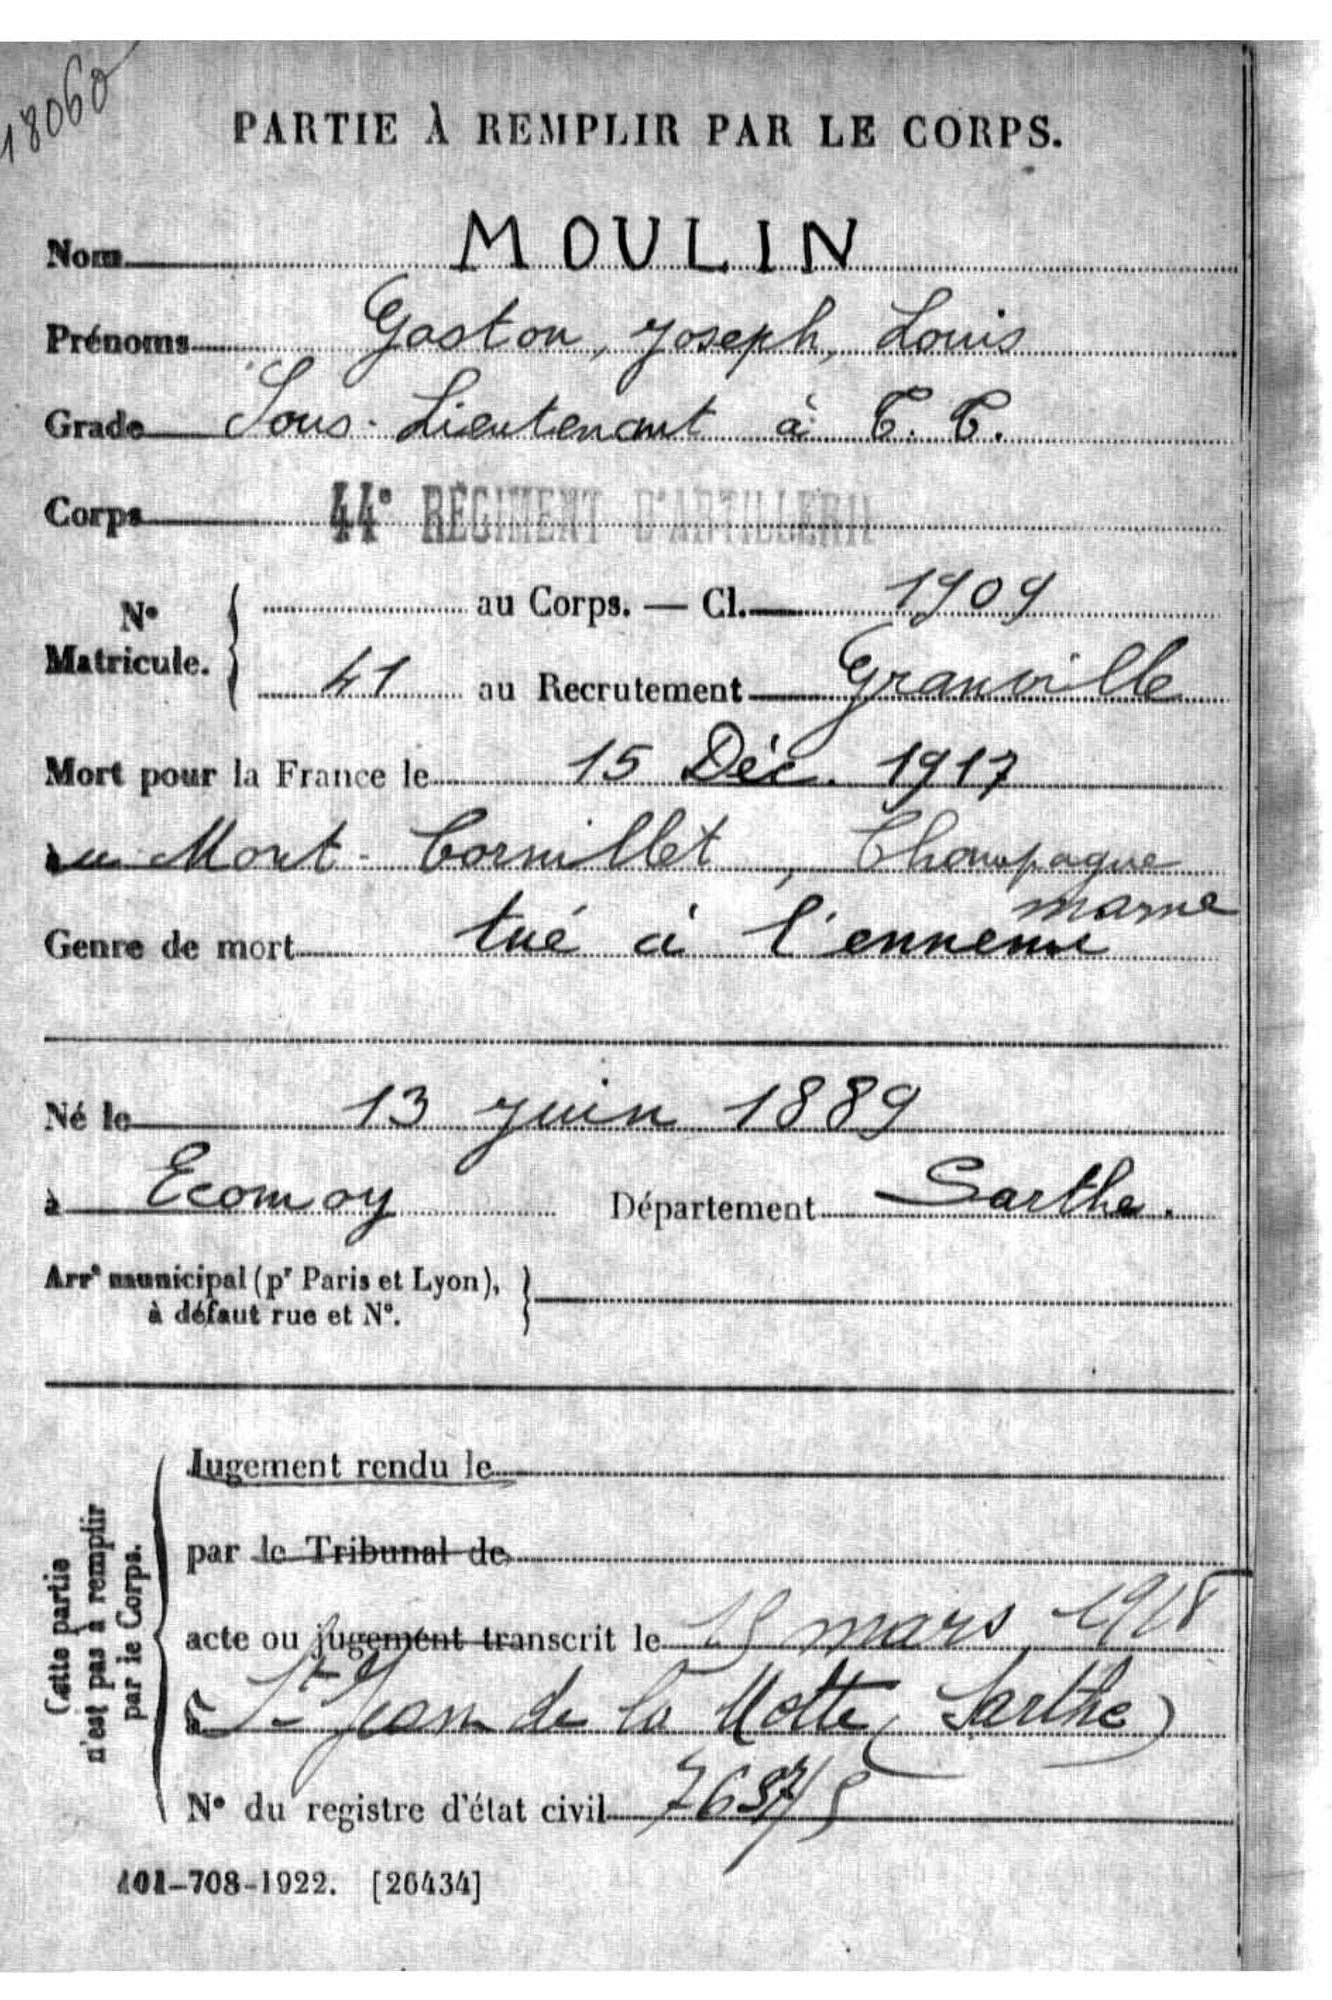 18060
PARTIE À REMPLIR PAR LE CORPS.
Nom MOULIN
Prénoms Gaston, Joseph, Louis
Grade Sous-Lieutenant à T. T.
Corps 44e RÉGIMENT D'ARTILLERIE
N° Matricule. au Corps. — Cl. 1909
41 au Recrutement Granville
Mort pour la France le 15 Déc. 1917
au Mont-Cornillet, Champagne
marne
Genre de mort tué à l'ennemi
Né le 13 juin 1889
à Ecomoy Département Sarthe.
Arrt municipal (pr Paris et Lyon),
à défaut rue et N°.
Cette partie
n'est pas à remplir
par le Corps.
Jugement rendu le
par le Tribunal de
acte ou jugement transcrit le mars 1918
à St Jean de la Motte (Sarthe)
N° du registre d'état civil
101-708-1922. [26434]